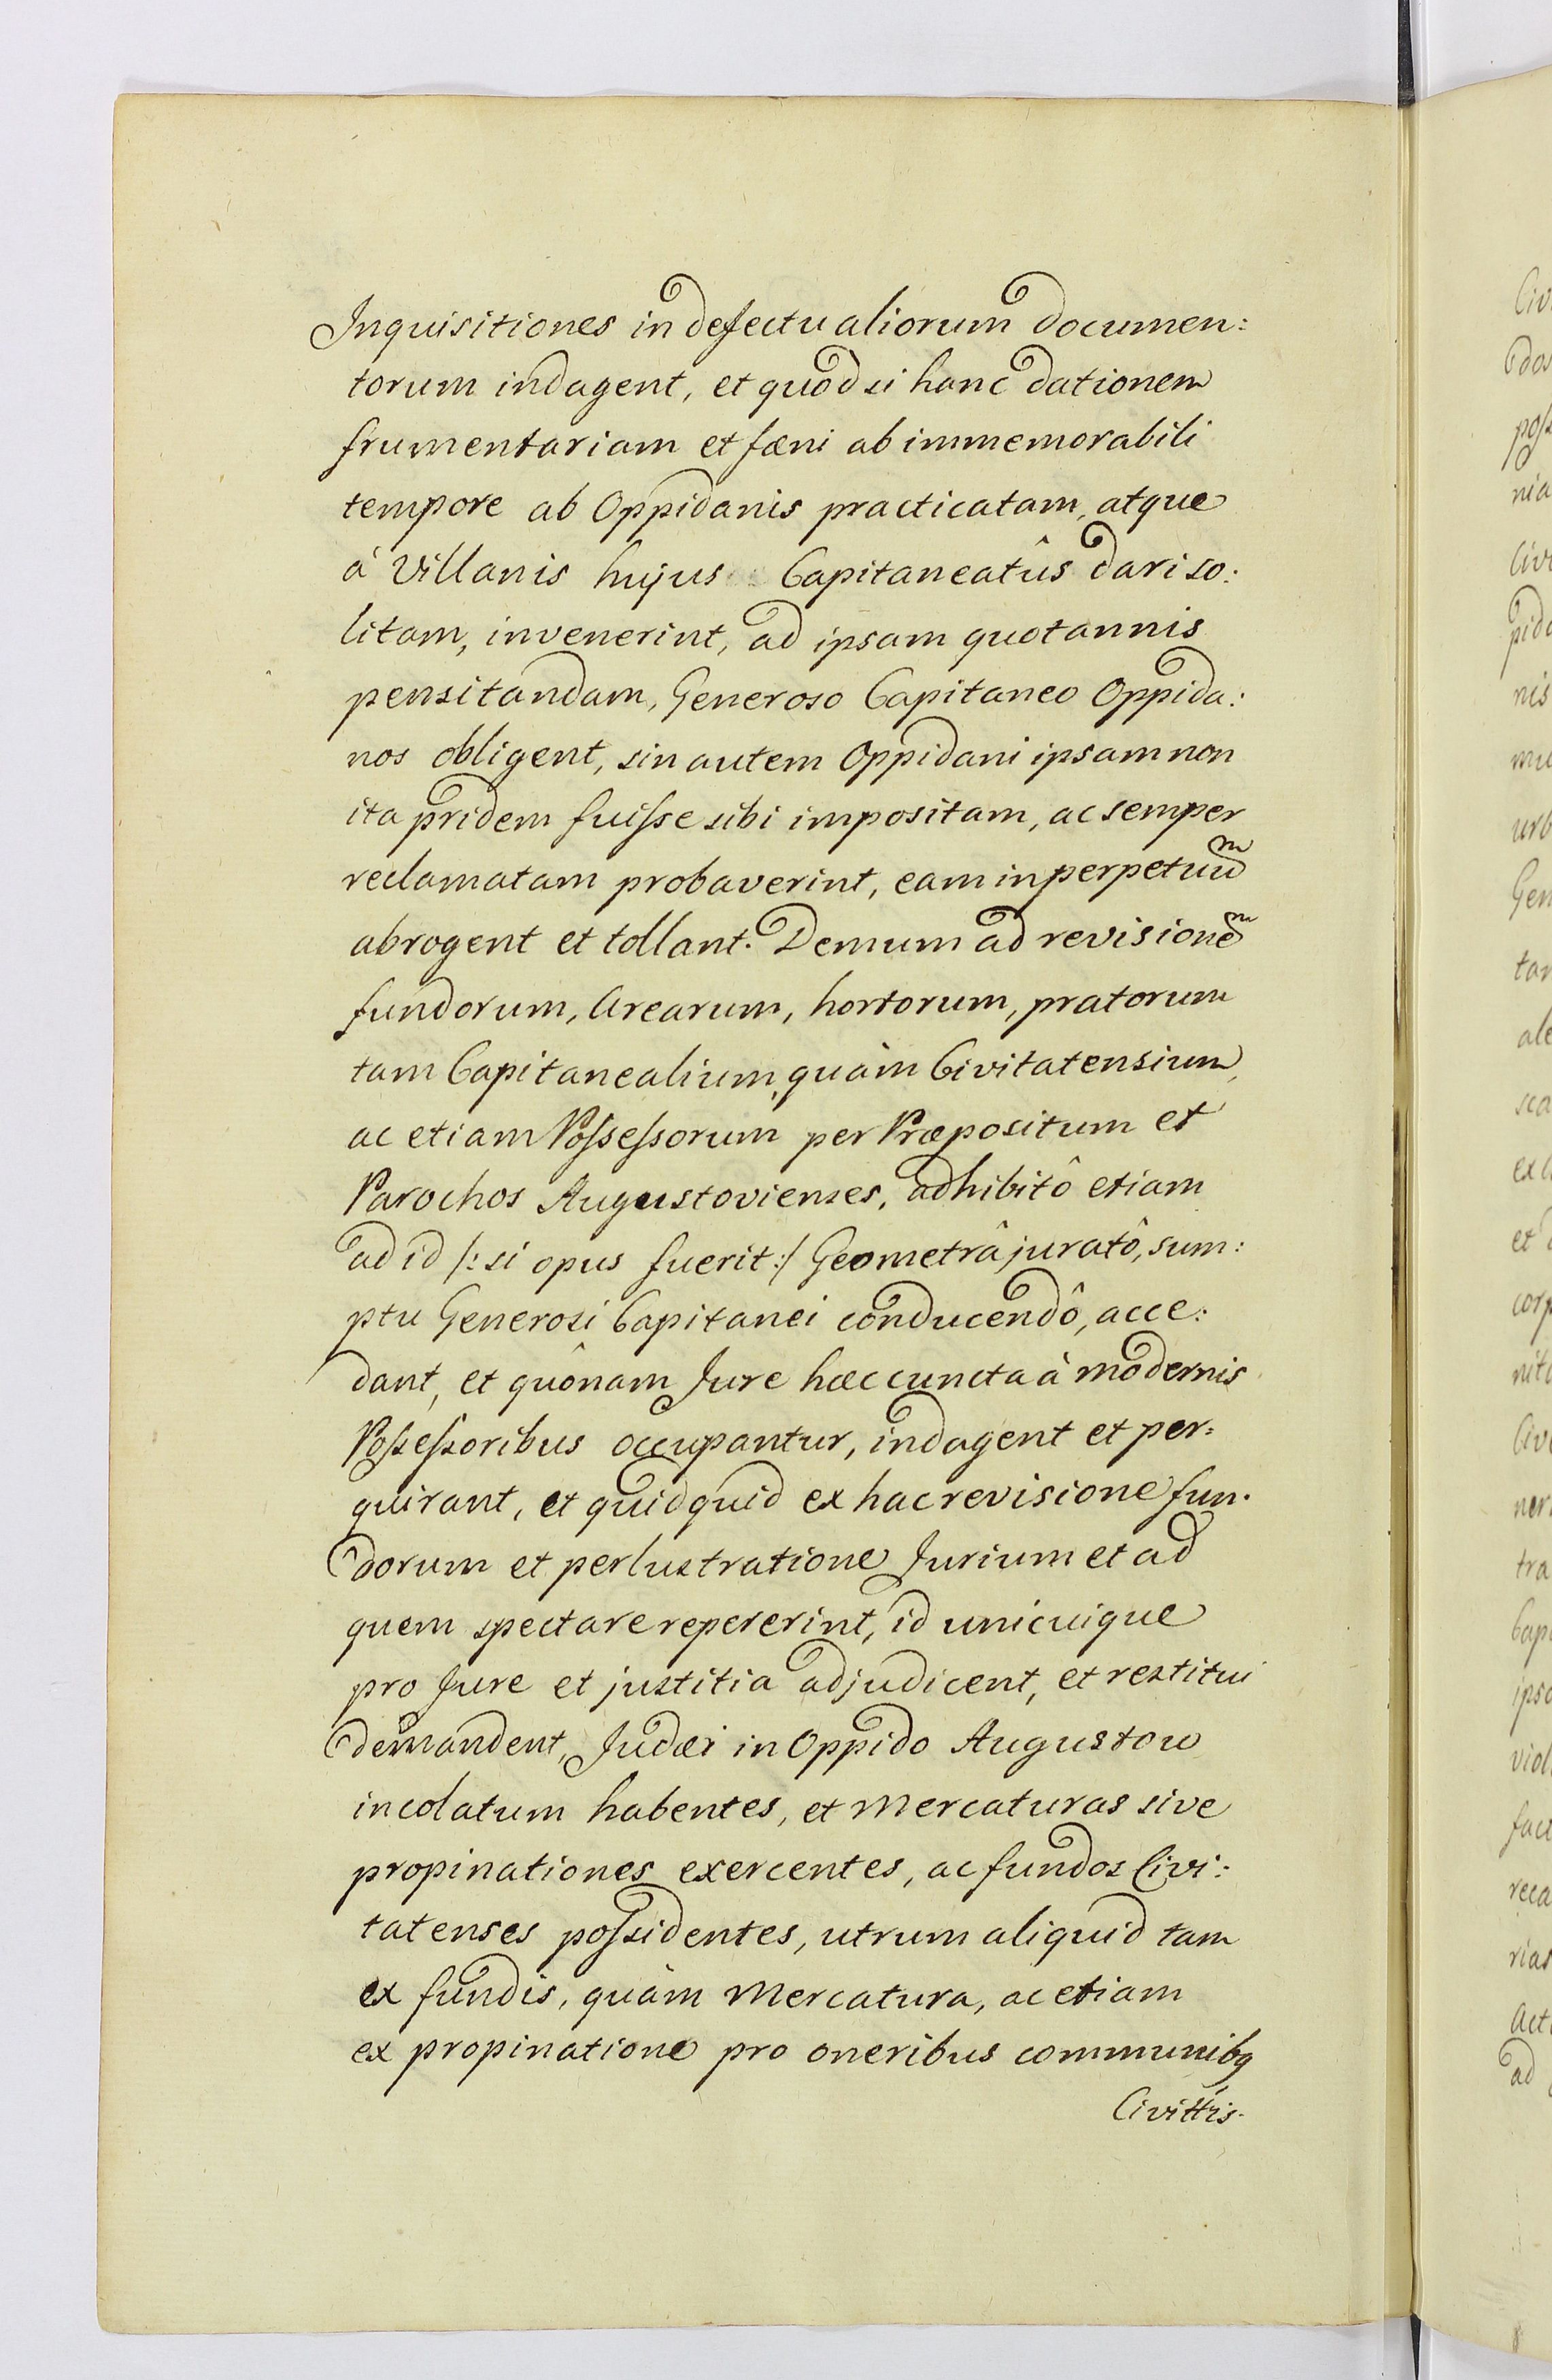 Inquisitiones in defectu aliorum documen:
torum indagent, et quòd si hanc dationem
frumentariam et fæni ab immemorabili
tempore ab Oppidanis practicatam, atque
à Villanis hujus Capitaneatûs dari so:
litam, invenerint, ad ipsam quotannis
pensitandam, Generoso Capitaneo Oppida:
nos obligent, sin autem Oppidani ipsam non
ita pridem fuiſse sibi impositam, ac semper
reclamatam probaverint, eam in perpetuũ
abrogent et tollant. Demum ad revisionẽ
fundorum, Arearum, hortorum, pratorum
tam Capitanealium, quàm Civitatensium,
ac etiam Poſseſsorum per Præpositum et
Parochos Augustovienses, adhibitô etiam
ad id /: si opus fuerit :/ Geometrâ juratô, sum:
ptu Generosi Capitanei conducendô, acce:
dant, et quônam Jure hæc cuncta à modernis
Poſseſsoribus occupantur, indagent et per:
quirant, et quidquid ex hac revisione fun:
dorum et perlustratione Jurium et ad
quem spectare repererint, id unicuique
pro Jure et justitia adjudicent, et restitui
demandent, Judæi in Oppido Augustow
incolatum habentes, et Mercaturas sive
propinationes exercentes, ac fundos Civi:
tatenses poſsidentes, utrum aliquid tam
ex fundis, quàm Mercatura, ac etiam
ex propinatione pro oneribus communibq
Civittis.